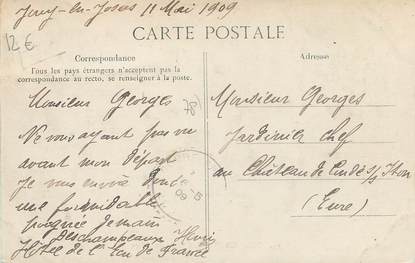 Jouy-en-Josas 11 Mai 1909
12 €
CARTE POSTALE
Correspondance
Tous les pays étrangers n'acceptent pas la
correspondance au recto, se renseigner à la poste.
Adresse
Monsieur Georges
78
Ne vous ayant pas vu
avant mon départ
Je vous envoie
une formidable
poignée de main
Deschampeaux Henri
Hôtel de l'Eau de France
Monsieur Georges
Jardinier chef
au Château de Condé s/ Iton
(Eure)
09